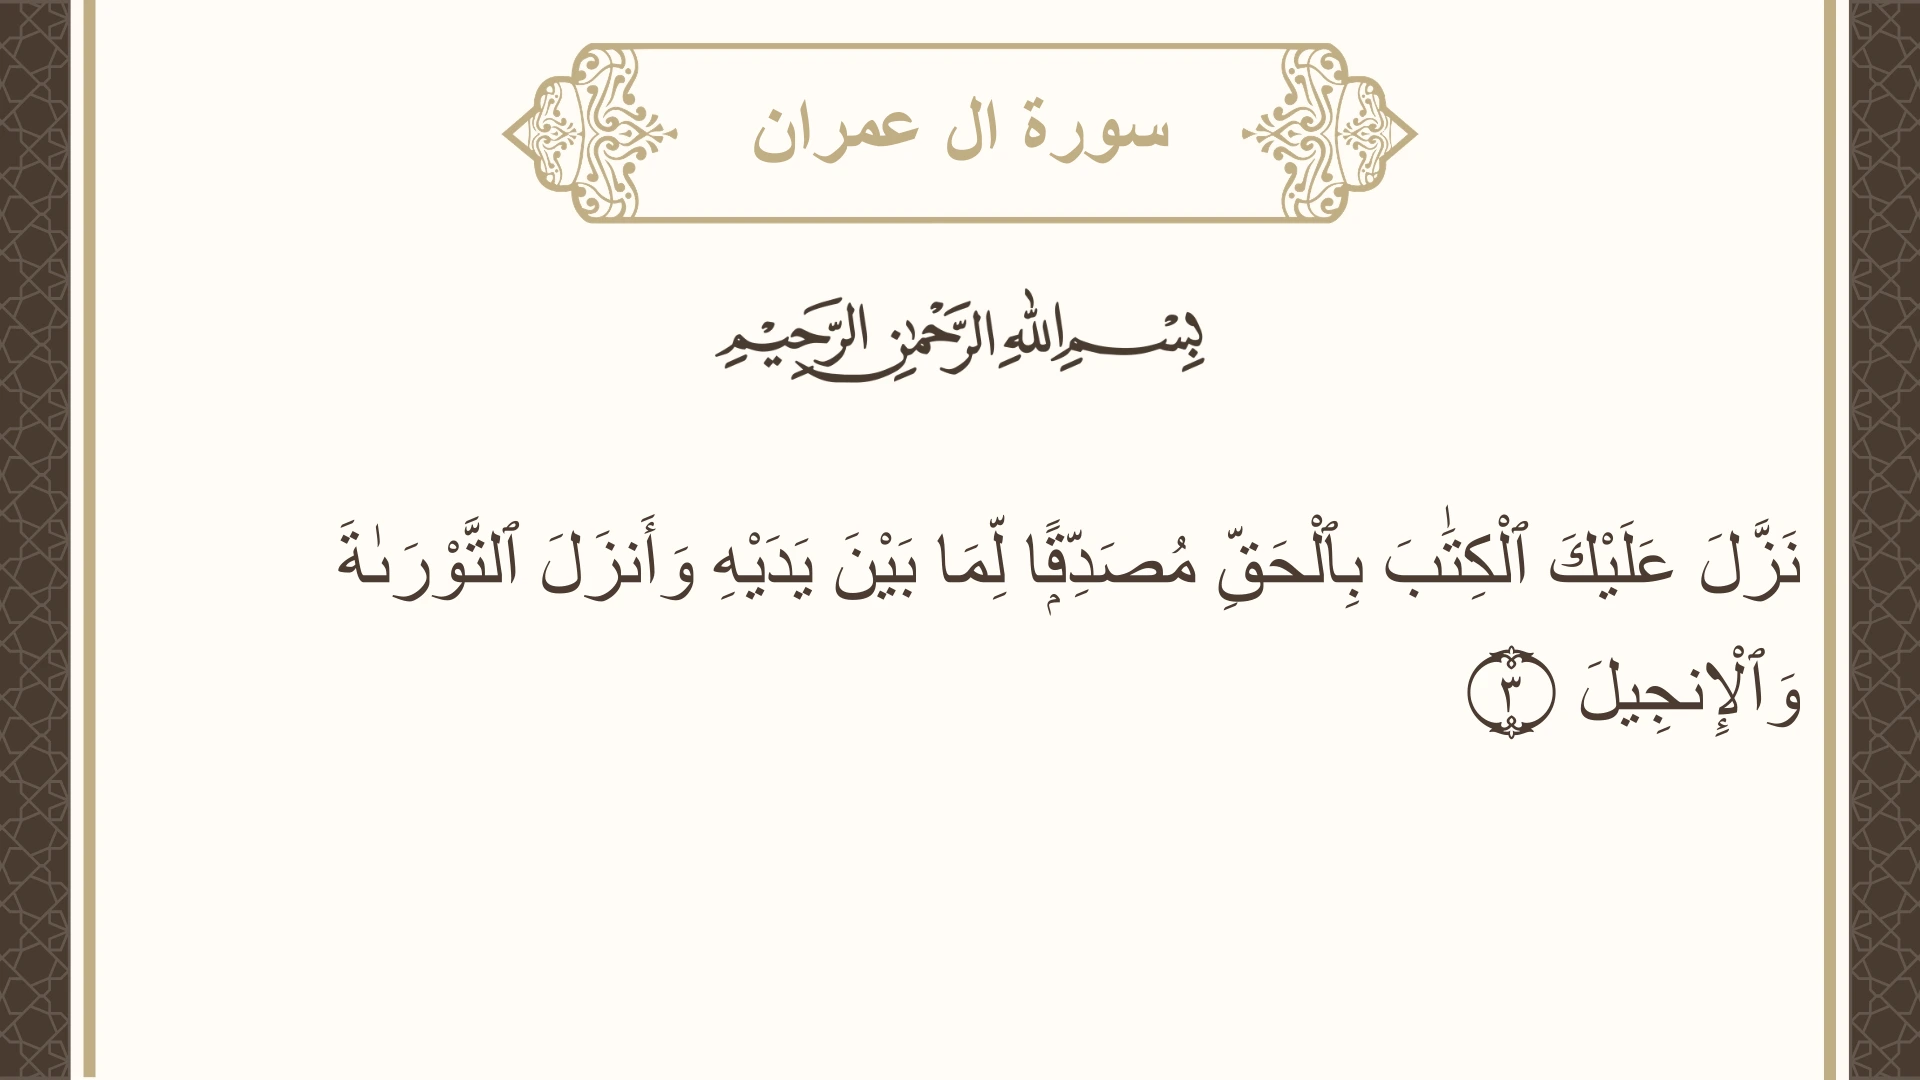 سورة ال عمران
بِسْمِ اللهِ الرَّحْمٰنِ الرَّحِيْمِ
نَزَّلَ عَلَيْكَ ٱلْكِتَٰبَ بِٱلْحَقِّ مُصَدِّقًۭا لِّمَا بَيْنَ يَدَيْهِ وَأَنزَلَ ٱلتَّوْرَىٰةَ
وَٱلْإِنجِيلَ ٣